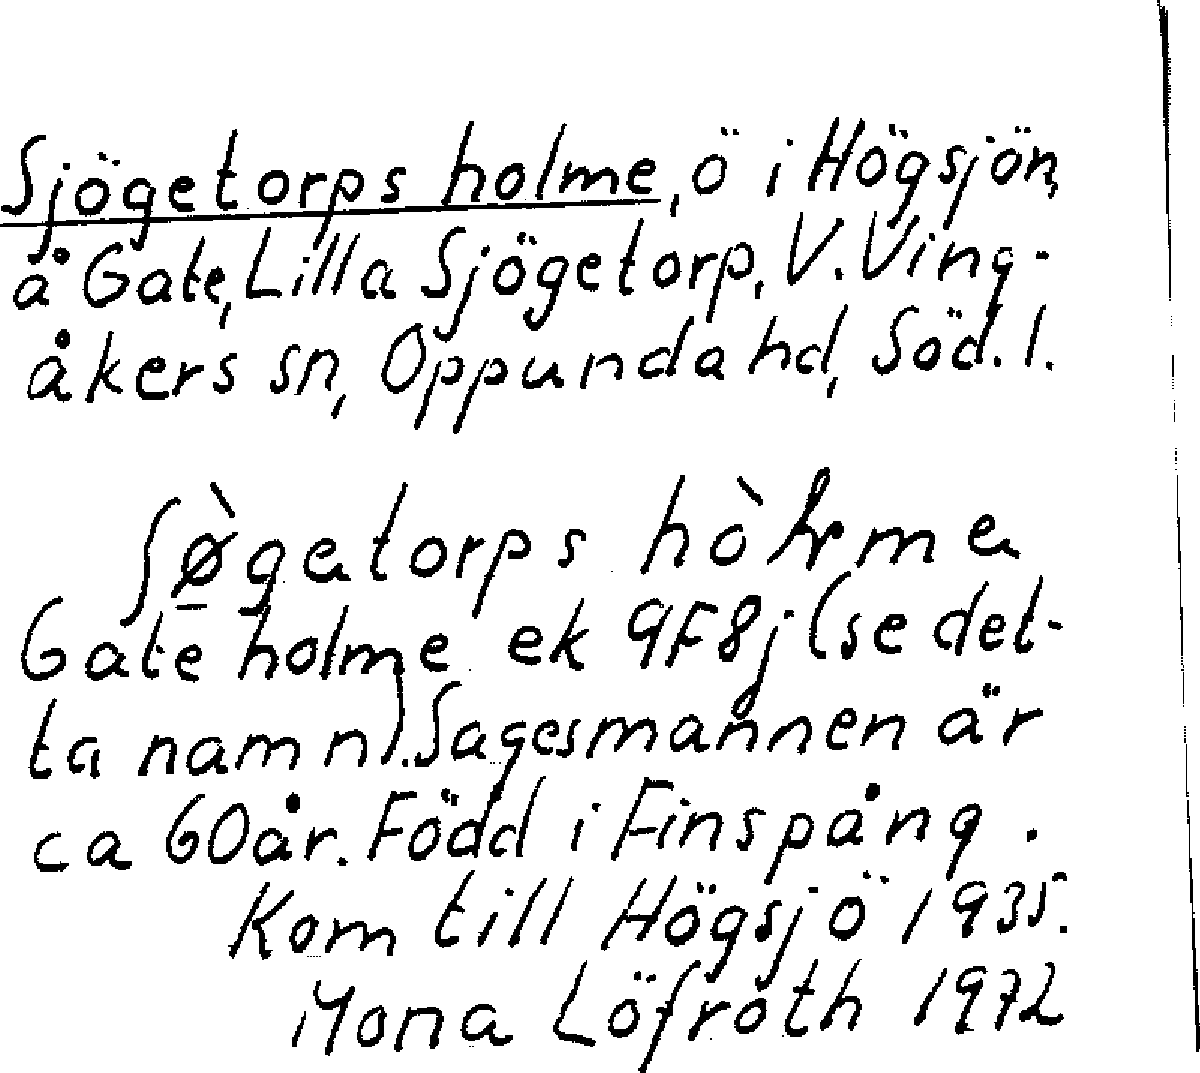 Sjögetorps holme, ö i Högsjön,
å Gate, Lilla Sjögetorp, V. Ving-
åkers sn, Oppunda hd, Söd. l.
holme ek 9F8j (se det-
ta namn). Sagesmannen är
ca 60 år. Född i Finspång.
Kom till Högsjö 1935.
Mona Löfroth 1972